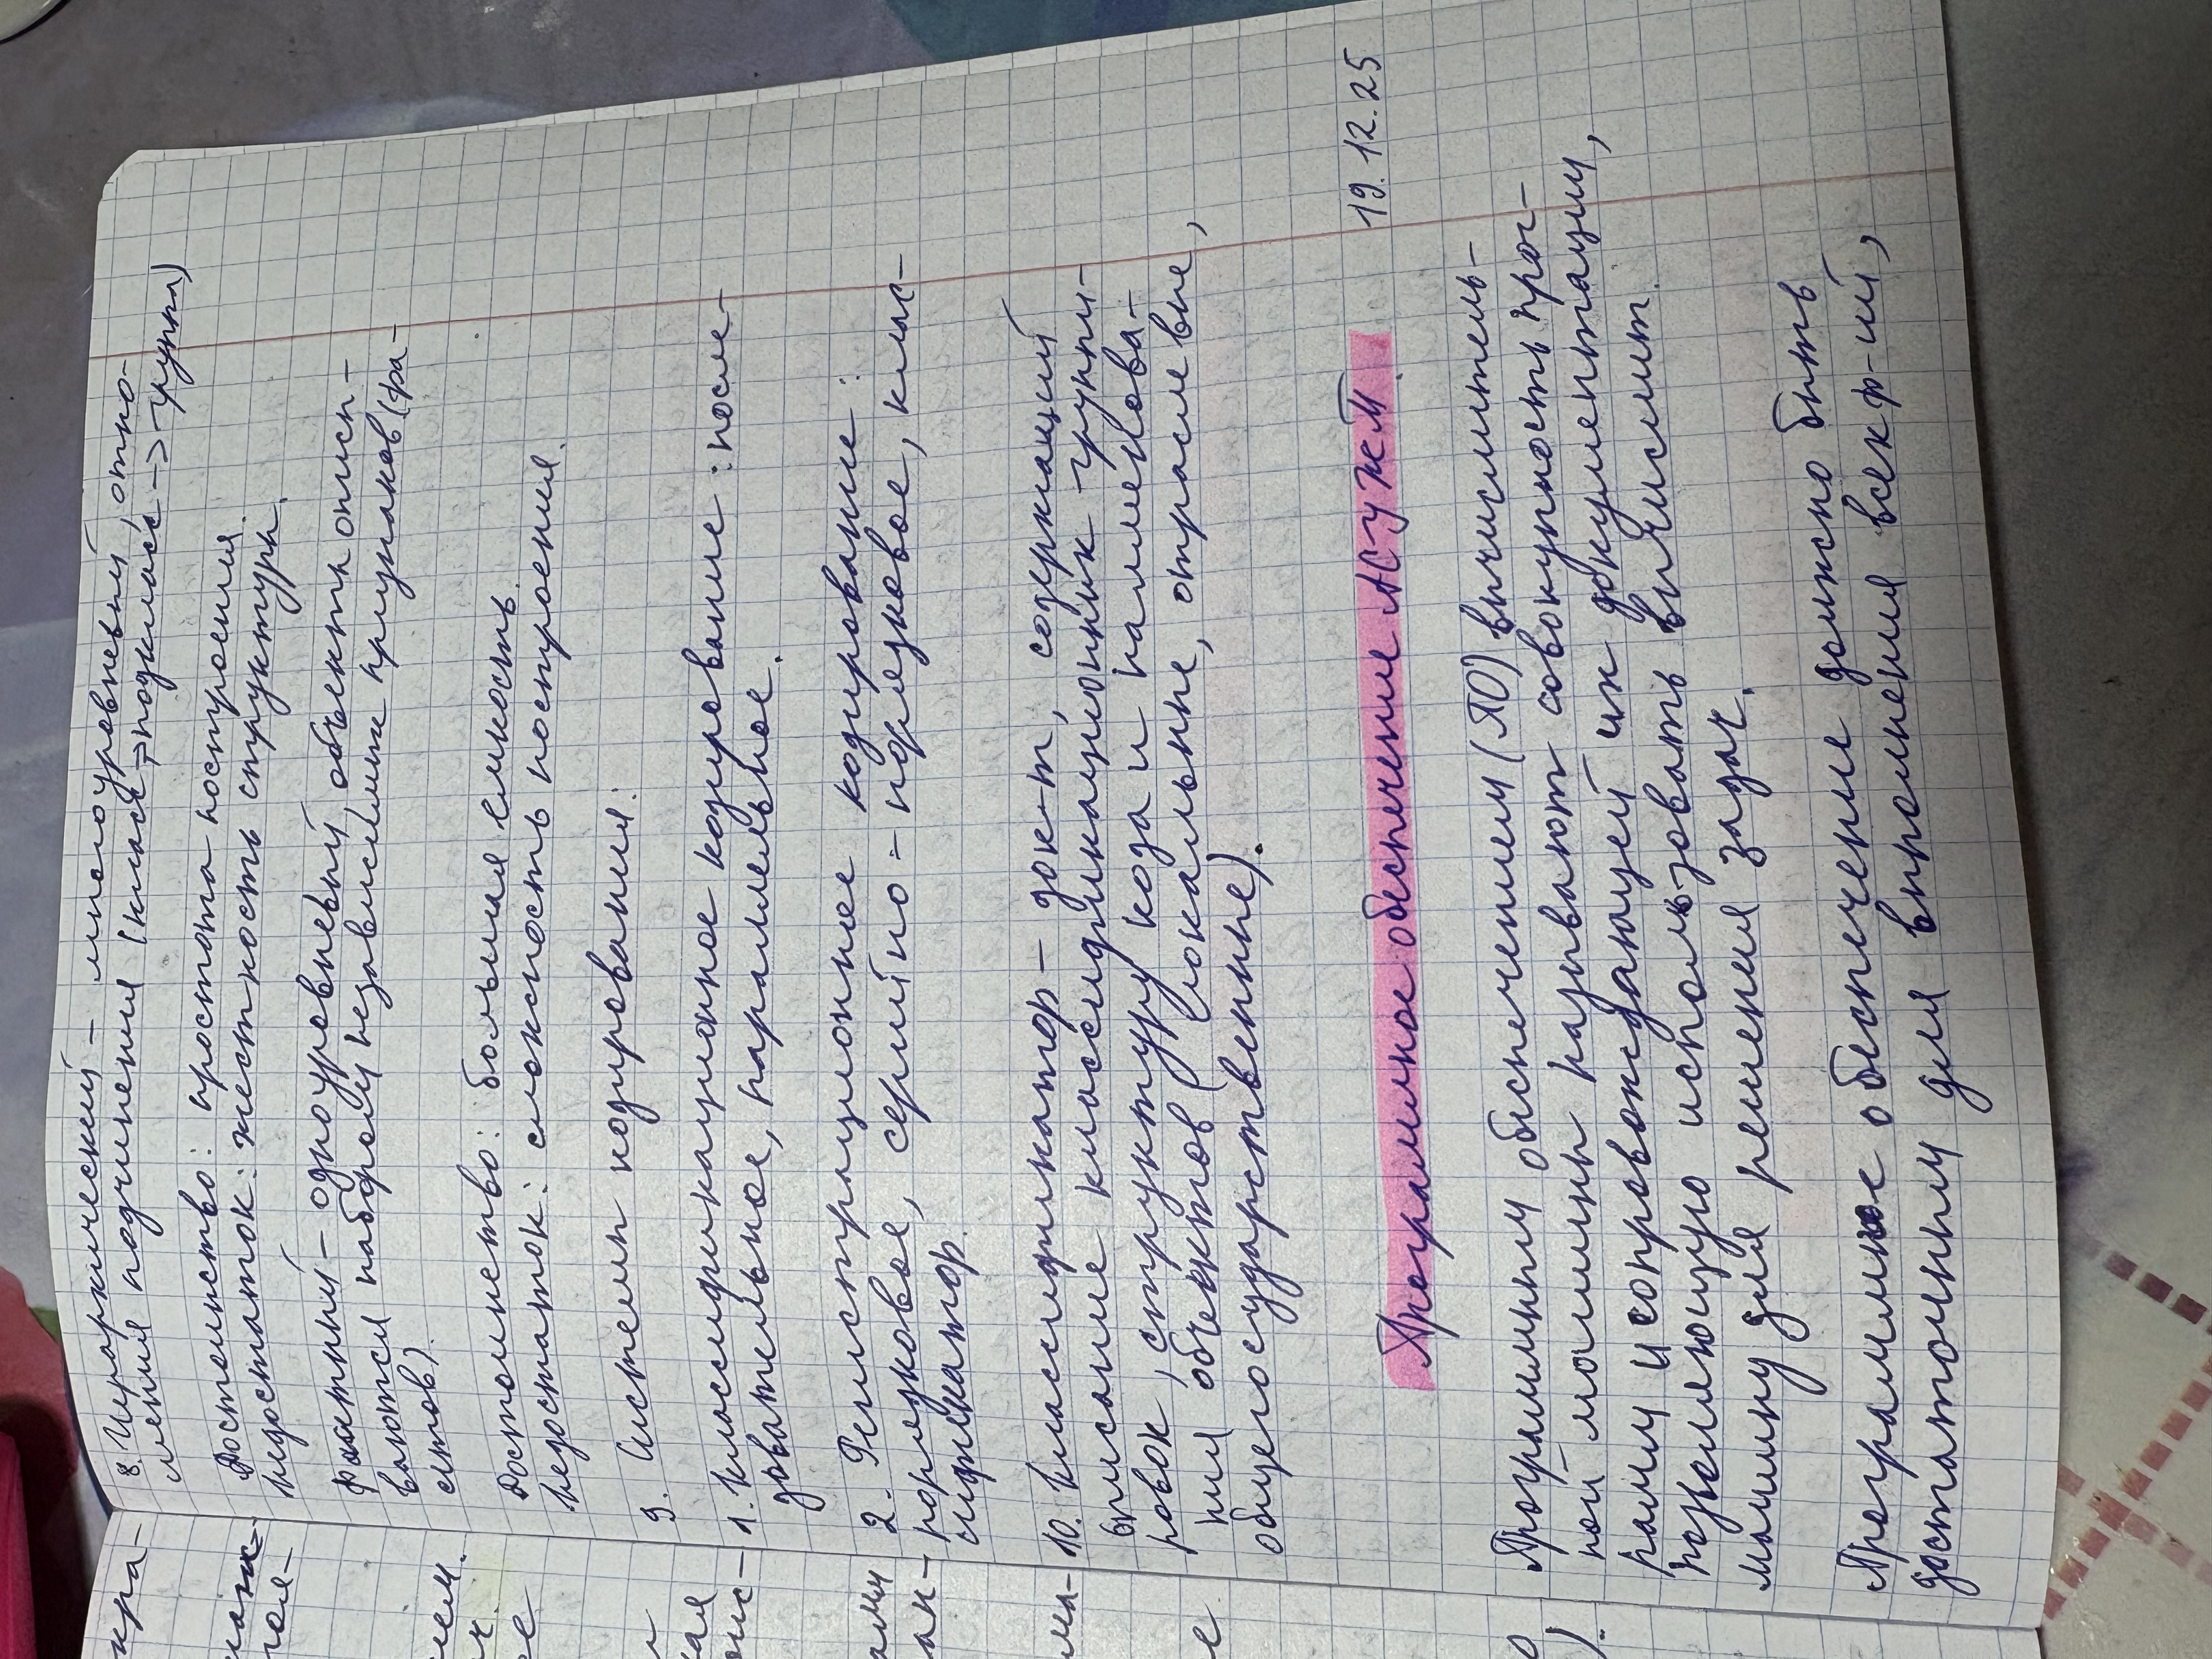 8. Иерархический – многоуровневый, отно-
шения подчинения (класс → подкласс → группа)
Достоинство: простота построения.
Недостаток: жёсткость структуры.
Фасетный – одноуровневый, объекты описы-
ваются набором независимых признаков (фа-
сетов).
Достоинство: большая ёмкость.
Недостаток: сложность построения.
9. Системы кодирования:
1. Классификационное кодирование: после-
довательное, параллельное.
2. Регистрационное кодирование:
порядковое, серийно-порядковое, клас-
сификатор.
10. Классификатор – док-т, содержащий
описание классификационных группи-
ровок, структуру кода и наименова-
ния объектов (локальные, отраслевые,
общегосударственные).
19.12.25
Программное обеспечение АСУЖТ.
Программным обеспечением (ПО) вычислитель-
ной машины называют совокупность прог-
рамм и сопровождающей их документации,
позволяющую использовать вычислит.
машину для решения задач.
Программное обеспечение должно быть
достаточным для выполнения всех ф-ий,
кра-
лем.
е
ая
ами
ма-
е
).